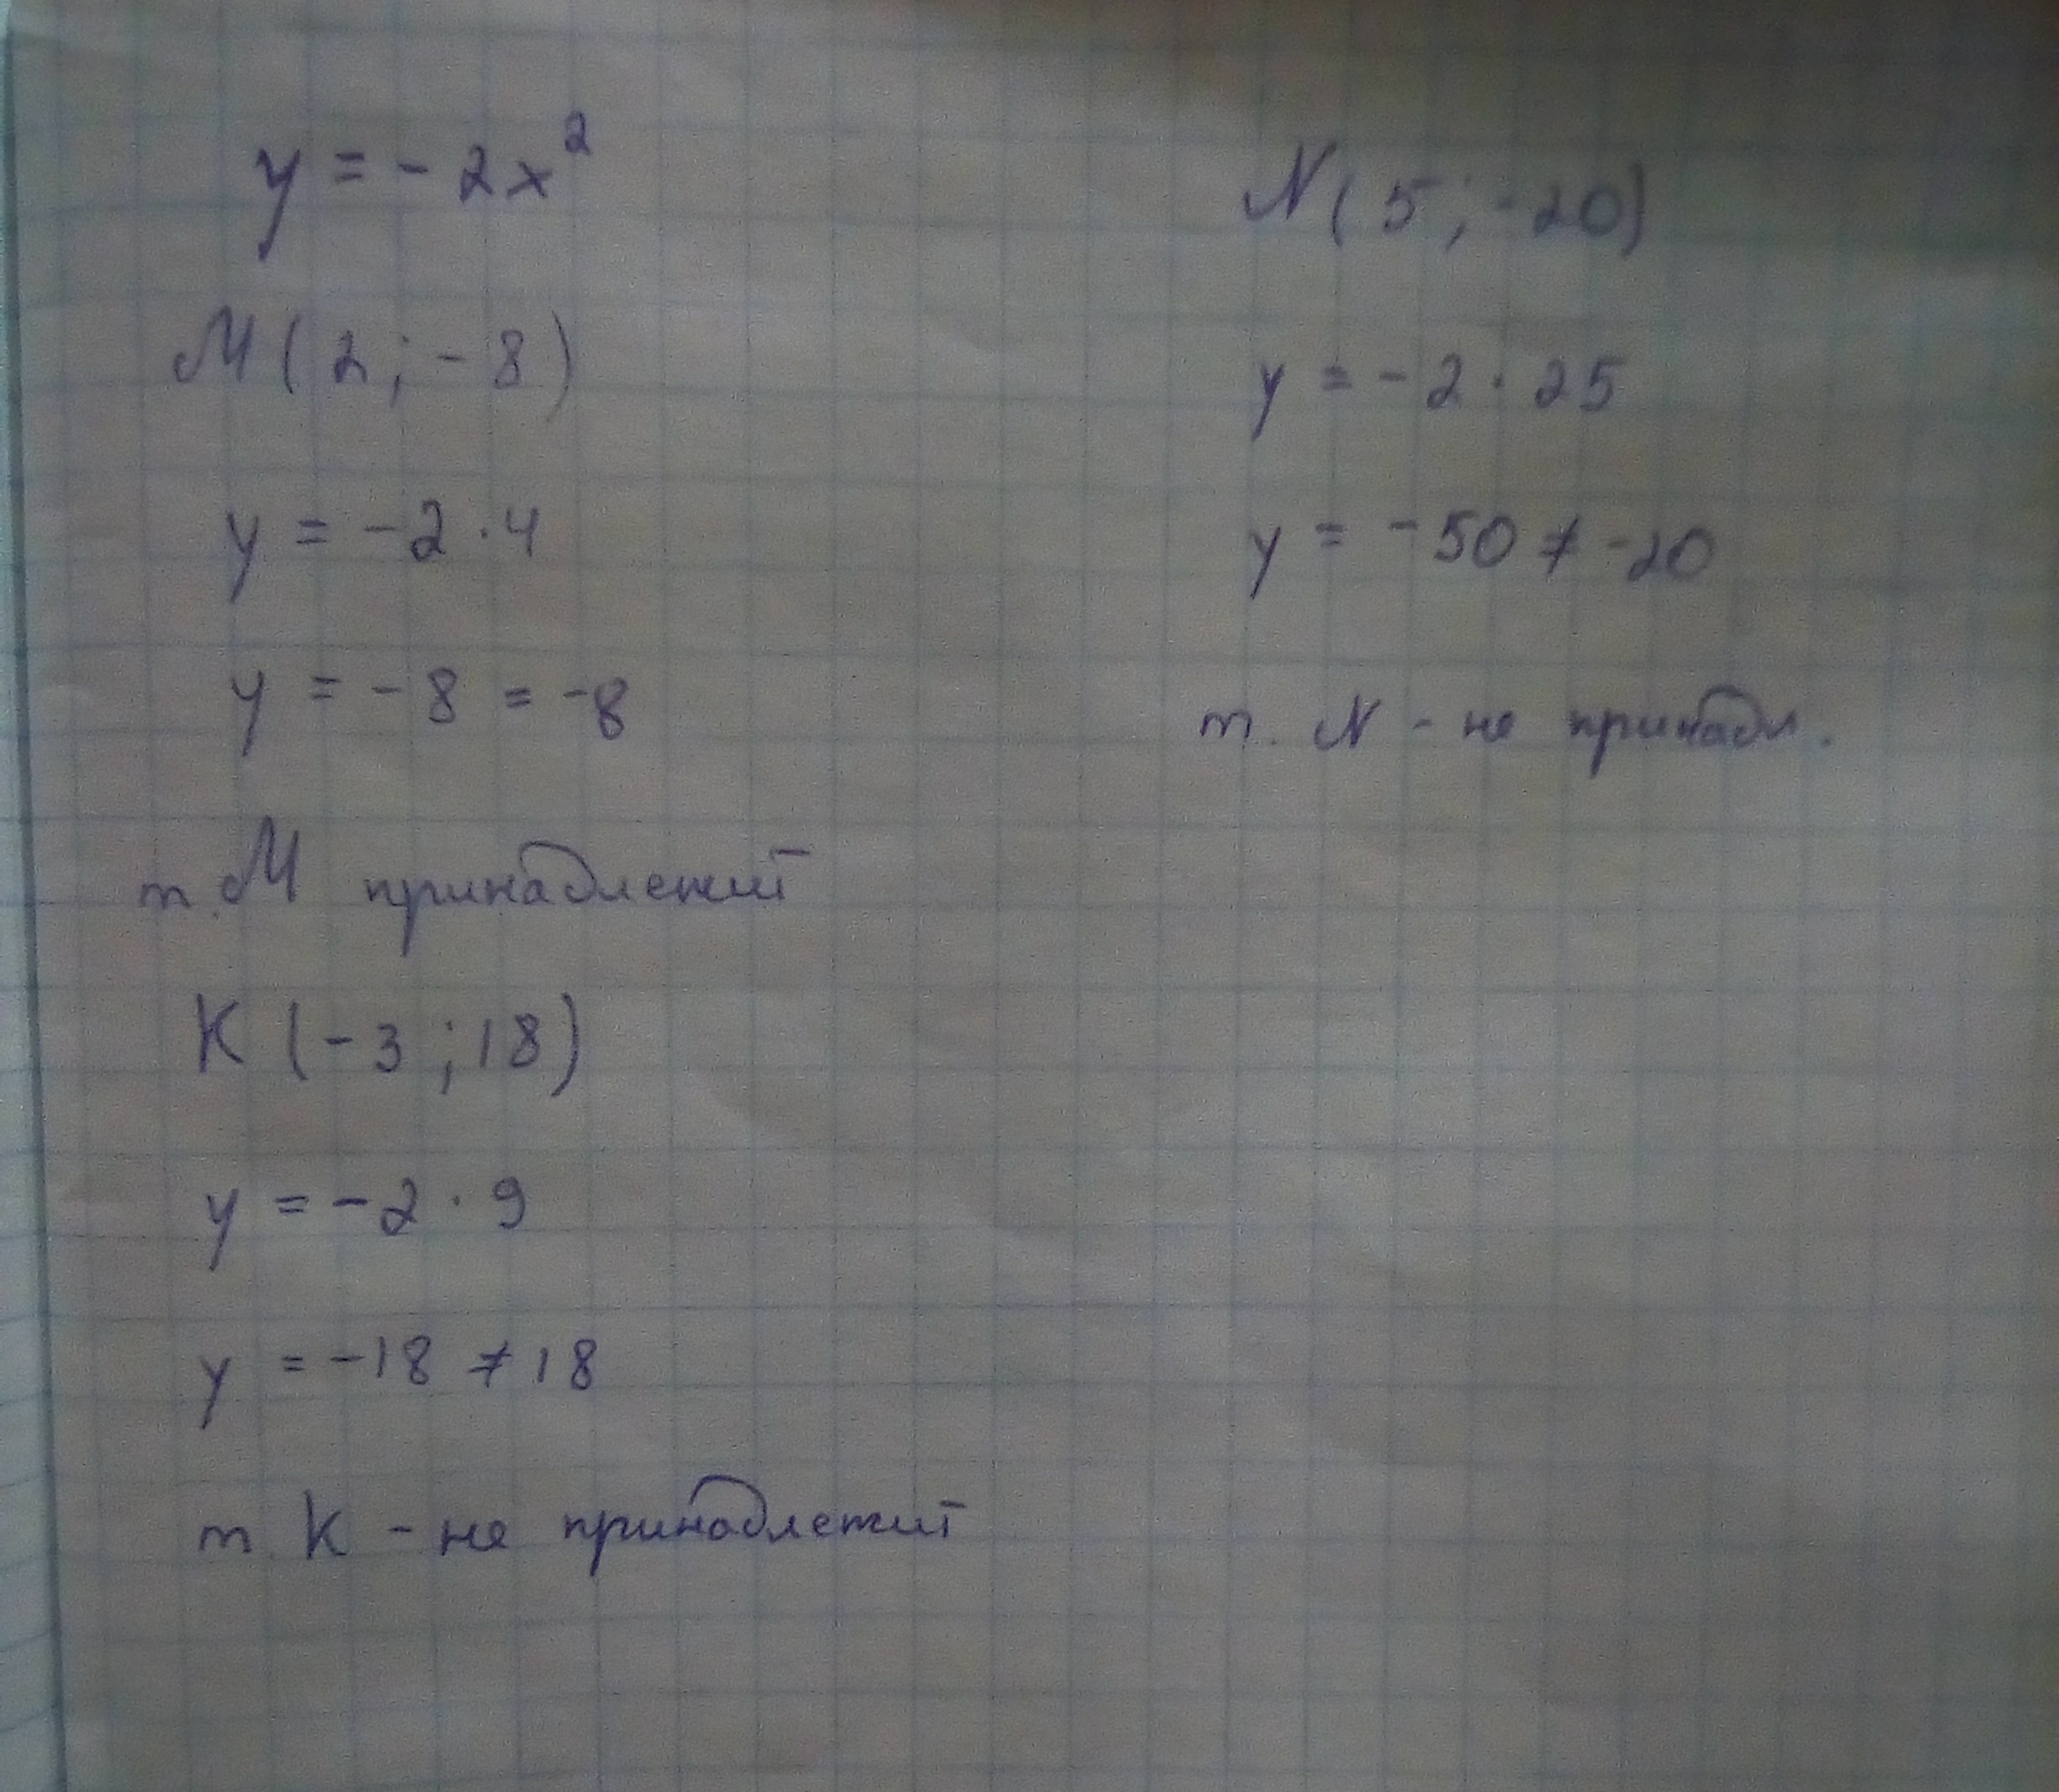 y = -2x²
M(2; -8)
y = -2·4
y = -8 = -8
т. M принадлежит
K(-3; 18)
y = -2·9
y = -18 ≠ 18
т. K - не принадлежит
N(5; -20)
y = -2·25
y = -50 ≠ -20
т. N - не принадл.